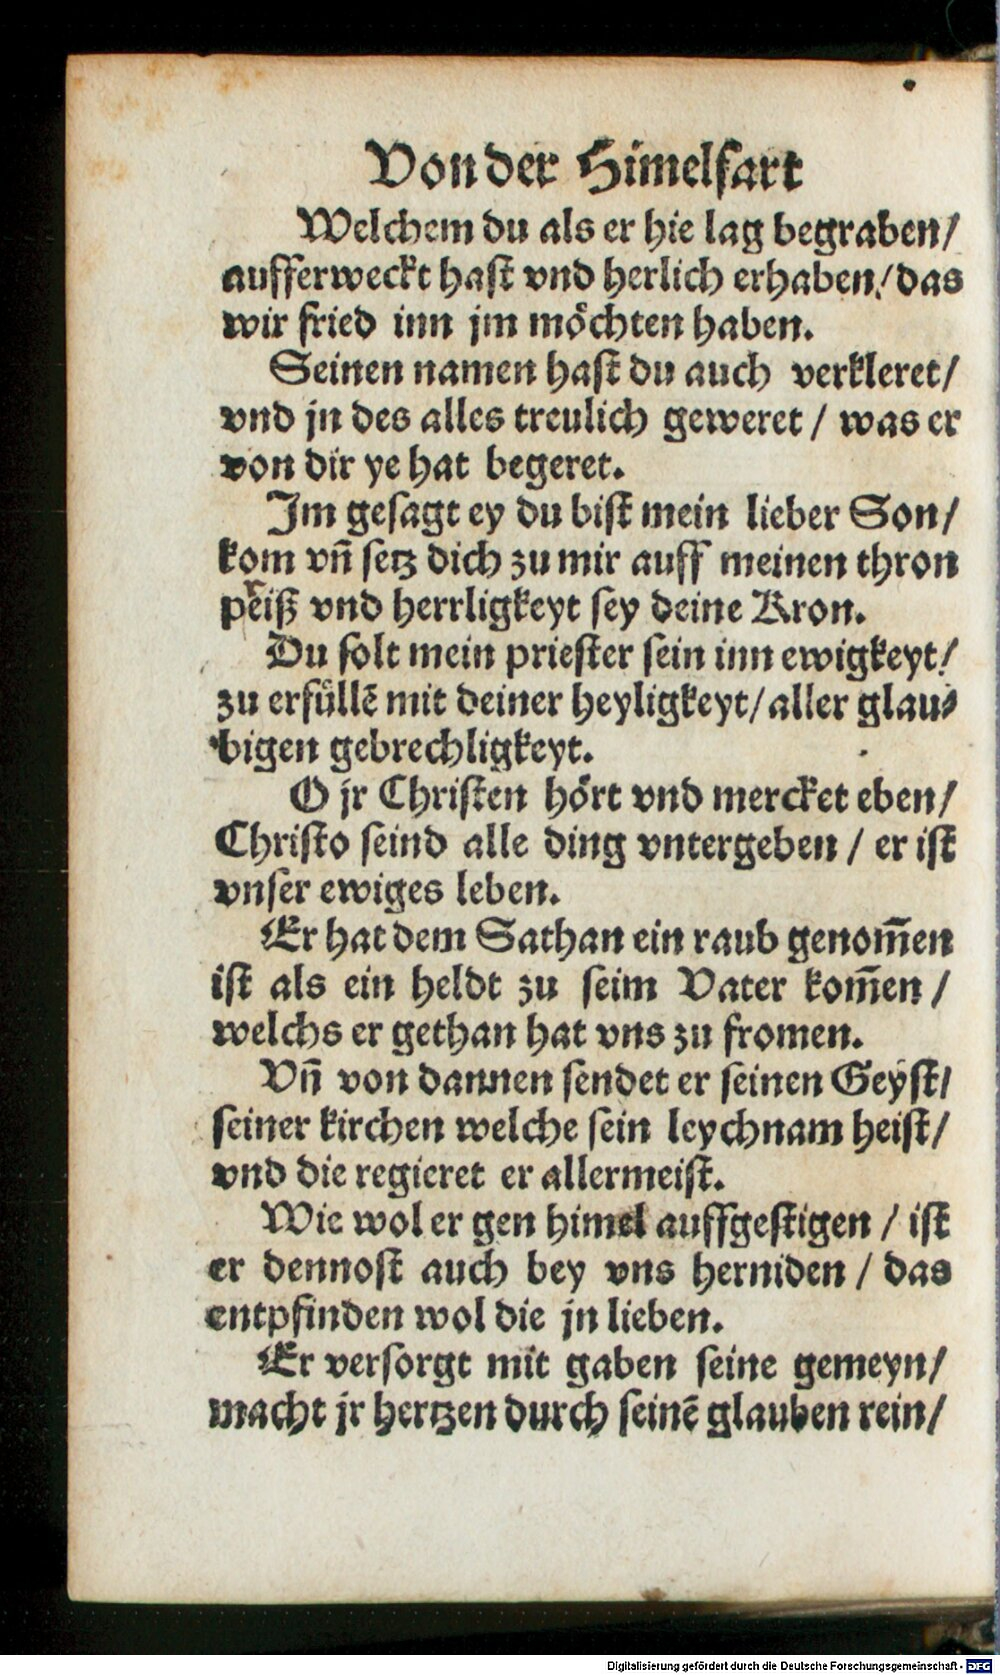 Von der Himelfart
Welchem du als er hie lag begraben/
aufferweckt hast vnd herlich erhaben/ das
wir fried inn jm möchten haben.
Seinen namen hast du auch verkleret/
vnd jn des alles treulich geweret / was er
von dir ye hat begeret.
Im gesagt ey du bist mein lieber Son/
kom vñ setz dich zu mir auff meinen thron
preiß vnd herrligkeyt sey deine Kron.
Du solt mein priester sein inn ewigkeyt/
zu erfüllē mit deiner heyligkeyt/ aller glau⸗
bigen gebrechligkeyt.
O jr Christen hört vnd mercket eben/
Christo seind alle ding vntergeben / er ist
vnser ewiges leben.
Er hat dem Sathan ein raub genom̄en
ist als ein heldt zu seim Vater kom̄en /
welchs er gethan hat vns zu fromen.
Vñ von dannen sendet er seinen Geyst/
seiner kirchen welche sein leychnam heist/
vnd die regieret er allermeist.
Wie wol er gen himel auffgestigen / ist
er dennost auch bey vns herniden / das
entpfinden wol die jn lieben.
Er versorgt mit gaben seine gemeyn/
macht jr hertzen durch seinē glauben rein/
Digitalisierung gefördert durch die Deutsche Forschungsgemeinschaft - DFG